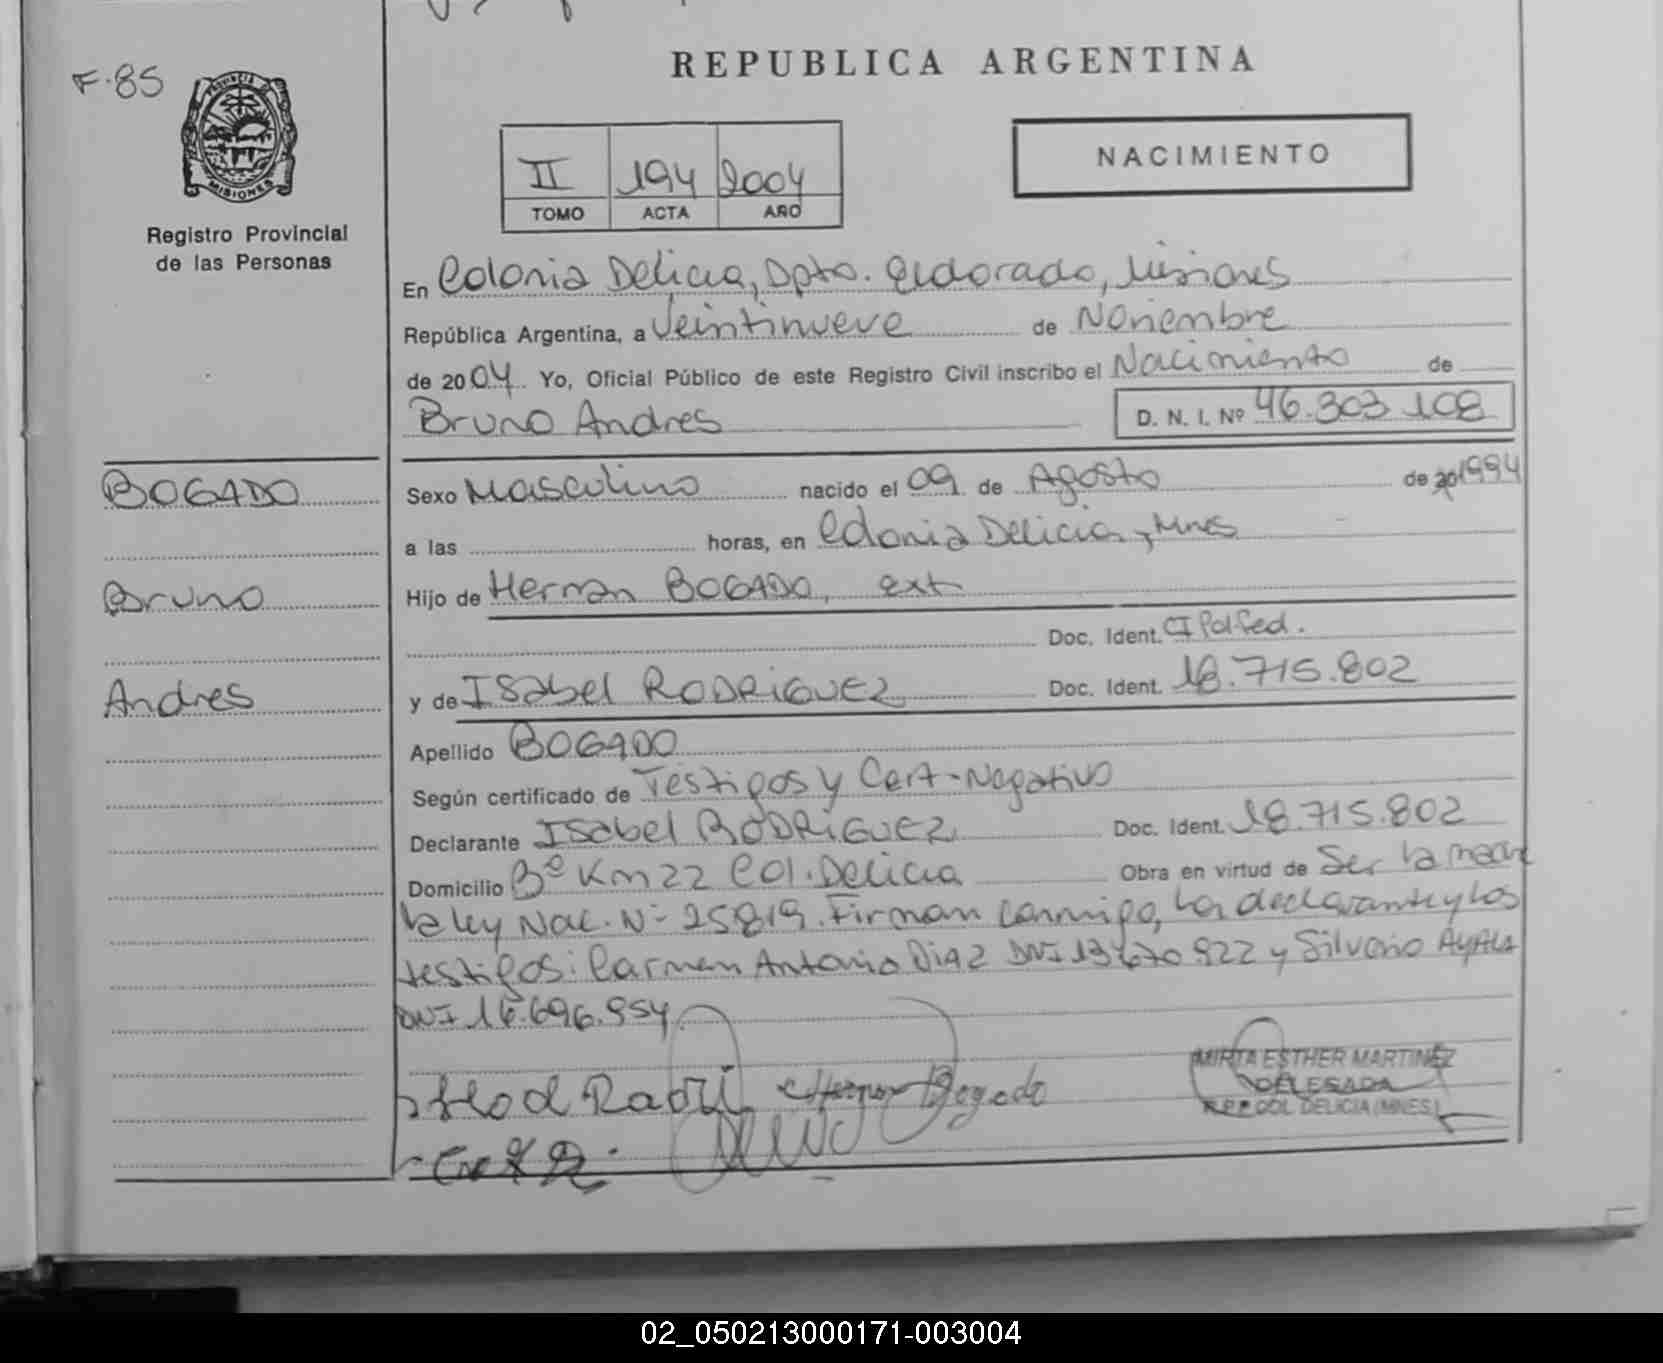 F.85
REPUBLICA ARGENTINA
PROVINCIA DE
MISIONES
Registro Provincial
de las Personas
II 194 2004
TOMO ACTA AÑO
NACIMIENTO
En Colonia Delicia, Dpto. Eldorado, Misiones
República Argentina, a Veintinueve de Noviembre
de 2004. Yo, Oficial Público de este Registro Civil inscribo el Nacimiento de
Bruno Andres D. N. I. Nº 46.303.108
BOGADO
Bruno
Andres
Sexo Masculino nacido el 09 de Agosto de 201994
a las horas, en Colonia Delicia, Mnes
Hijo de Hernan BOGADO, ext
Doc. Ident. CI Pol Fed.
y de Isabel RODRIGUEZ Doc. Ident. 18.715.802
Apellido BOGADO
Según certificado de Testigos y Cert-Negativo
Declarante Isabel RODRIGUEZ Doc. Ident. 18.715.802
Domicilio Bº Km 22 Col. Delicia Obra en virtud de Ser la madre
la ley Nac. Nº 25819. Firman conmigo, los declarante y los
testigos: Carmen Antonio Diaz DNI 13.670.922 y Silverio AYALA
DNI 16.696.954
Hernan Bogado
MIRTA ESTHER MARTINEZ
DELEGADA
R.P.P. COL. DELICIA (MNES)
02_050213000171-003004